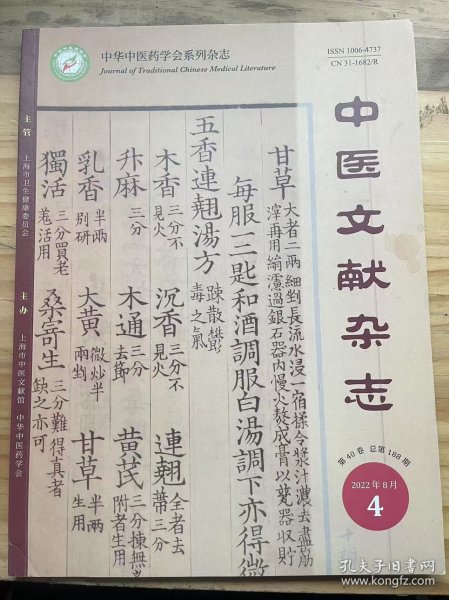 中华中医药学会系列杂志
Journal of Traditional Chinese Medical Literature
ISSN 1006-4737
CN 31-1682/R
中医文献杂志
第40卷 总第188期
2022年8月
4
主管 上海市卫生健康委员会 主办 上海市中医文献馆 中华中医药学会
甘草 大者二兩細剉長流水浸一宿揉令漿汁濃去盡筋
滓再用綿濾過銀石器內慢火熬成膏以瓷器收貯
每服一二匙和酒調服白湯調下亦得微
五香連翹湯方 疎散鬱
毒之氣
木香 三分不
見火
沉香 三分不
見火
連翹 全者去
蒂三分
升麻 三分
木通 三分
去節
黄芪 三分揀無
附者生用
乳香 半兩
别研
大黄 微炒半
兩剉
甘草 半兩
生用
獨活 三分買老
羗活用
桑寄生 三分難得真者
缺之亦可
孔夫子旧书网
kongfz.com